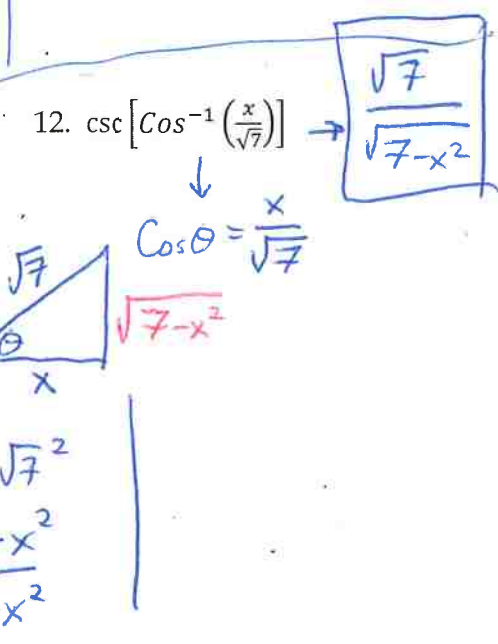 12. csc[Cos⁻¹(x/√7)] → √7/√(7-x²)
↓
Cosθ = x/√7
√7
√(7-x²)
θ
x
√7²
-x²
x²